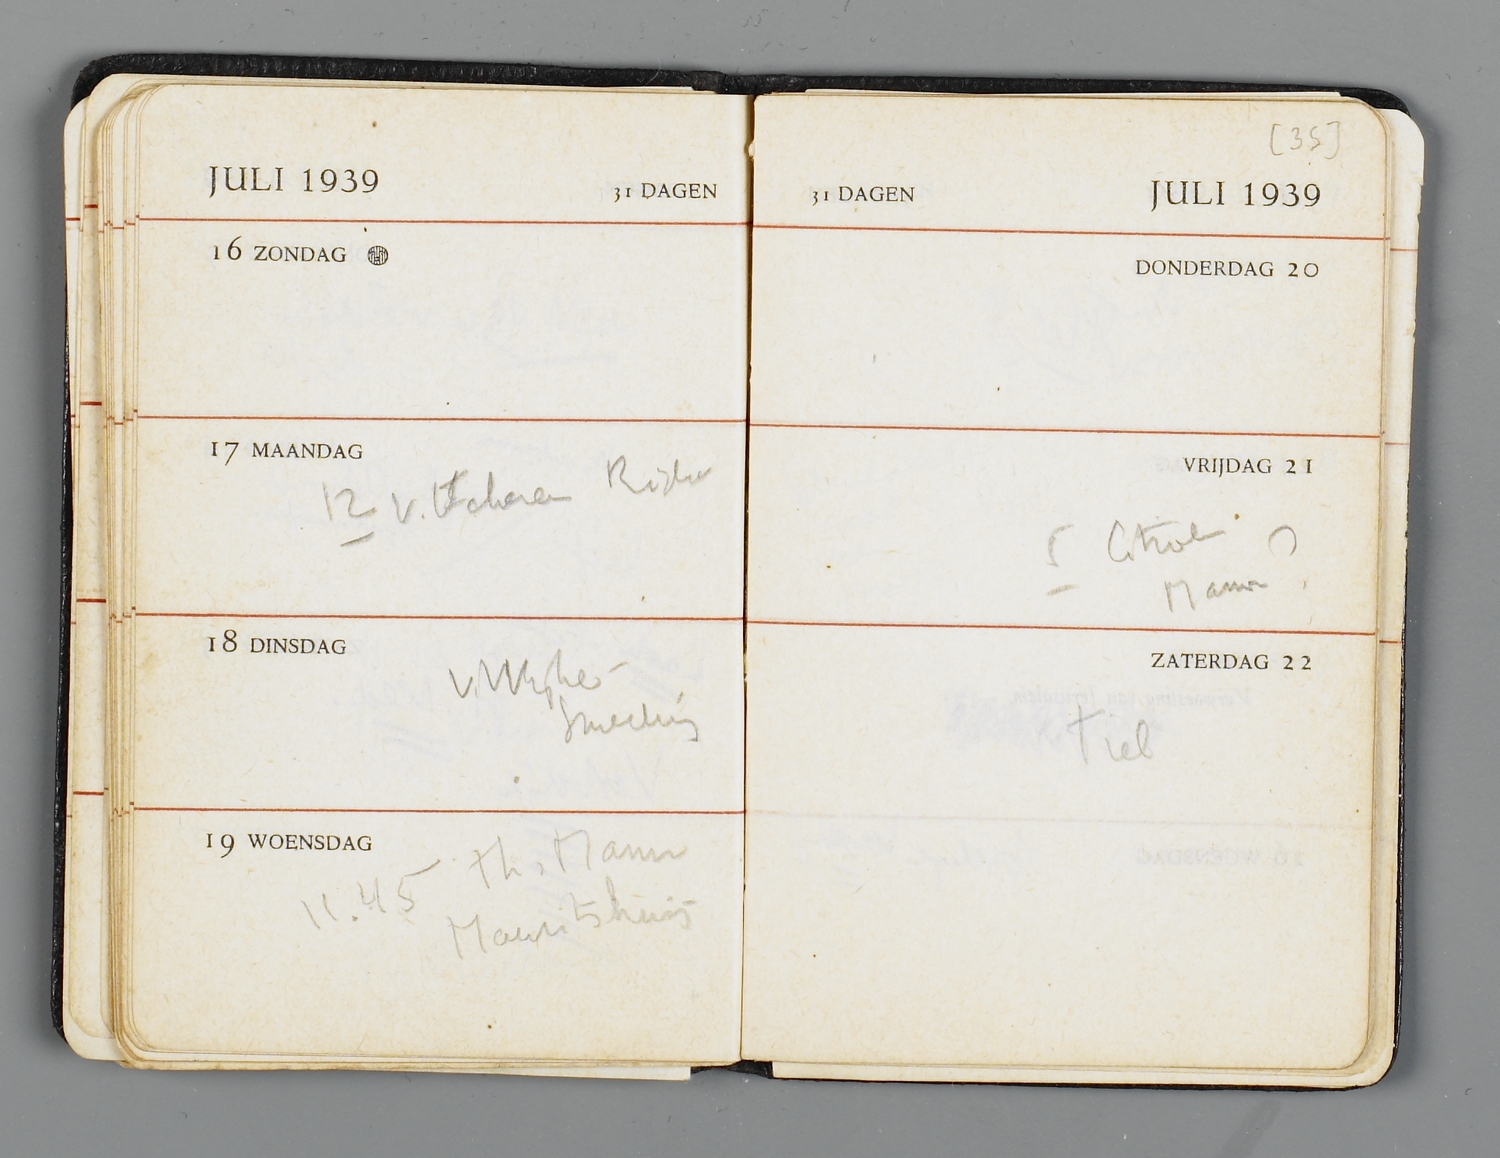 JULI 1939 31 DAGEN
16 ZONDAG
17 MAANDAG
12 v.
18 DINSDAG
19 WOENSDAG
11.45 Th. Mann
Mauritshuis
[35]
31 DAGEN JULI 1939
DONDERDAG 20
VRIJDAG 21
5
Mann ?
ZATERDAG 22
Tiel